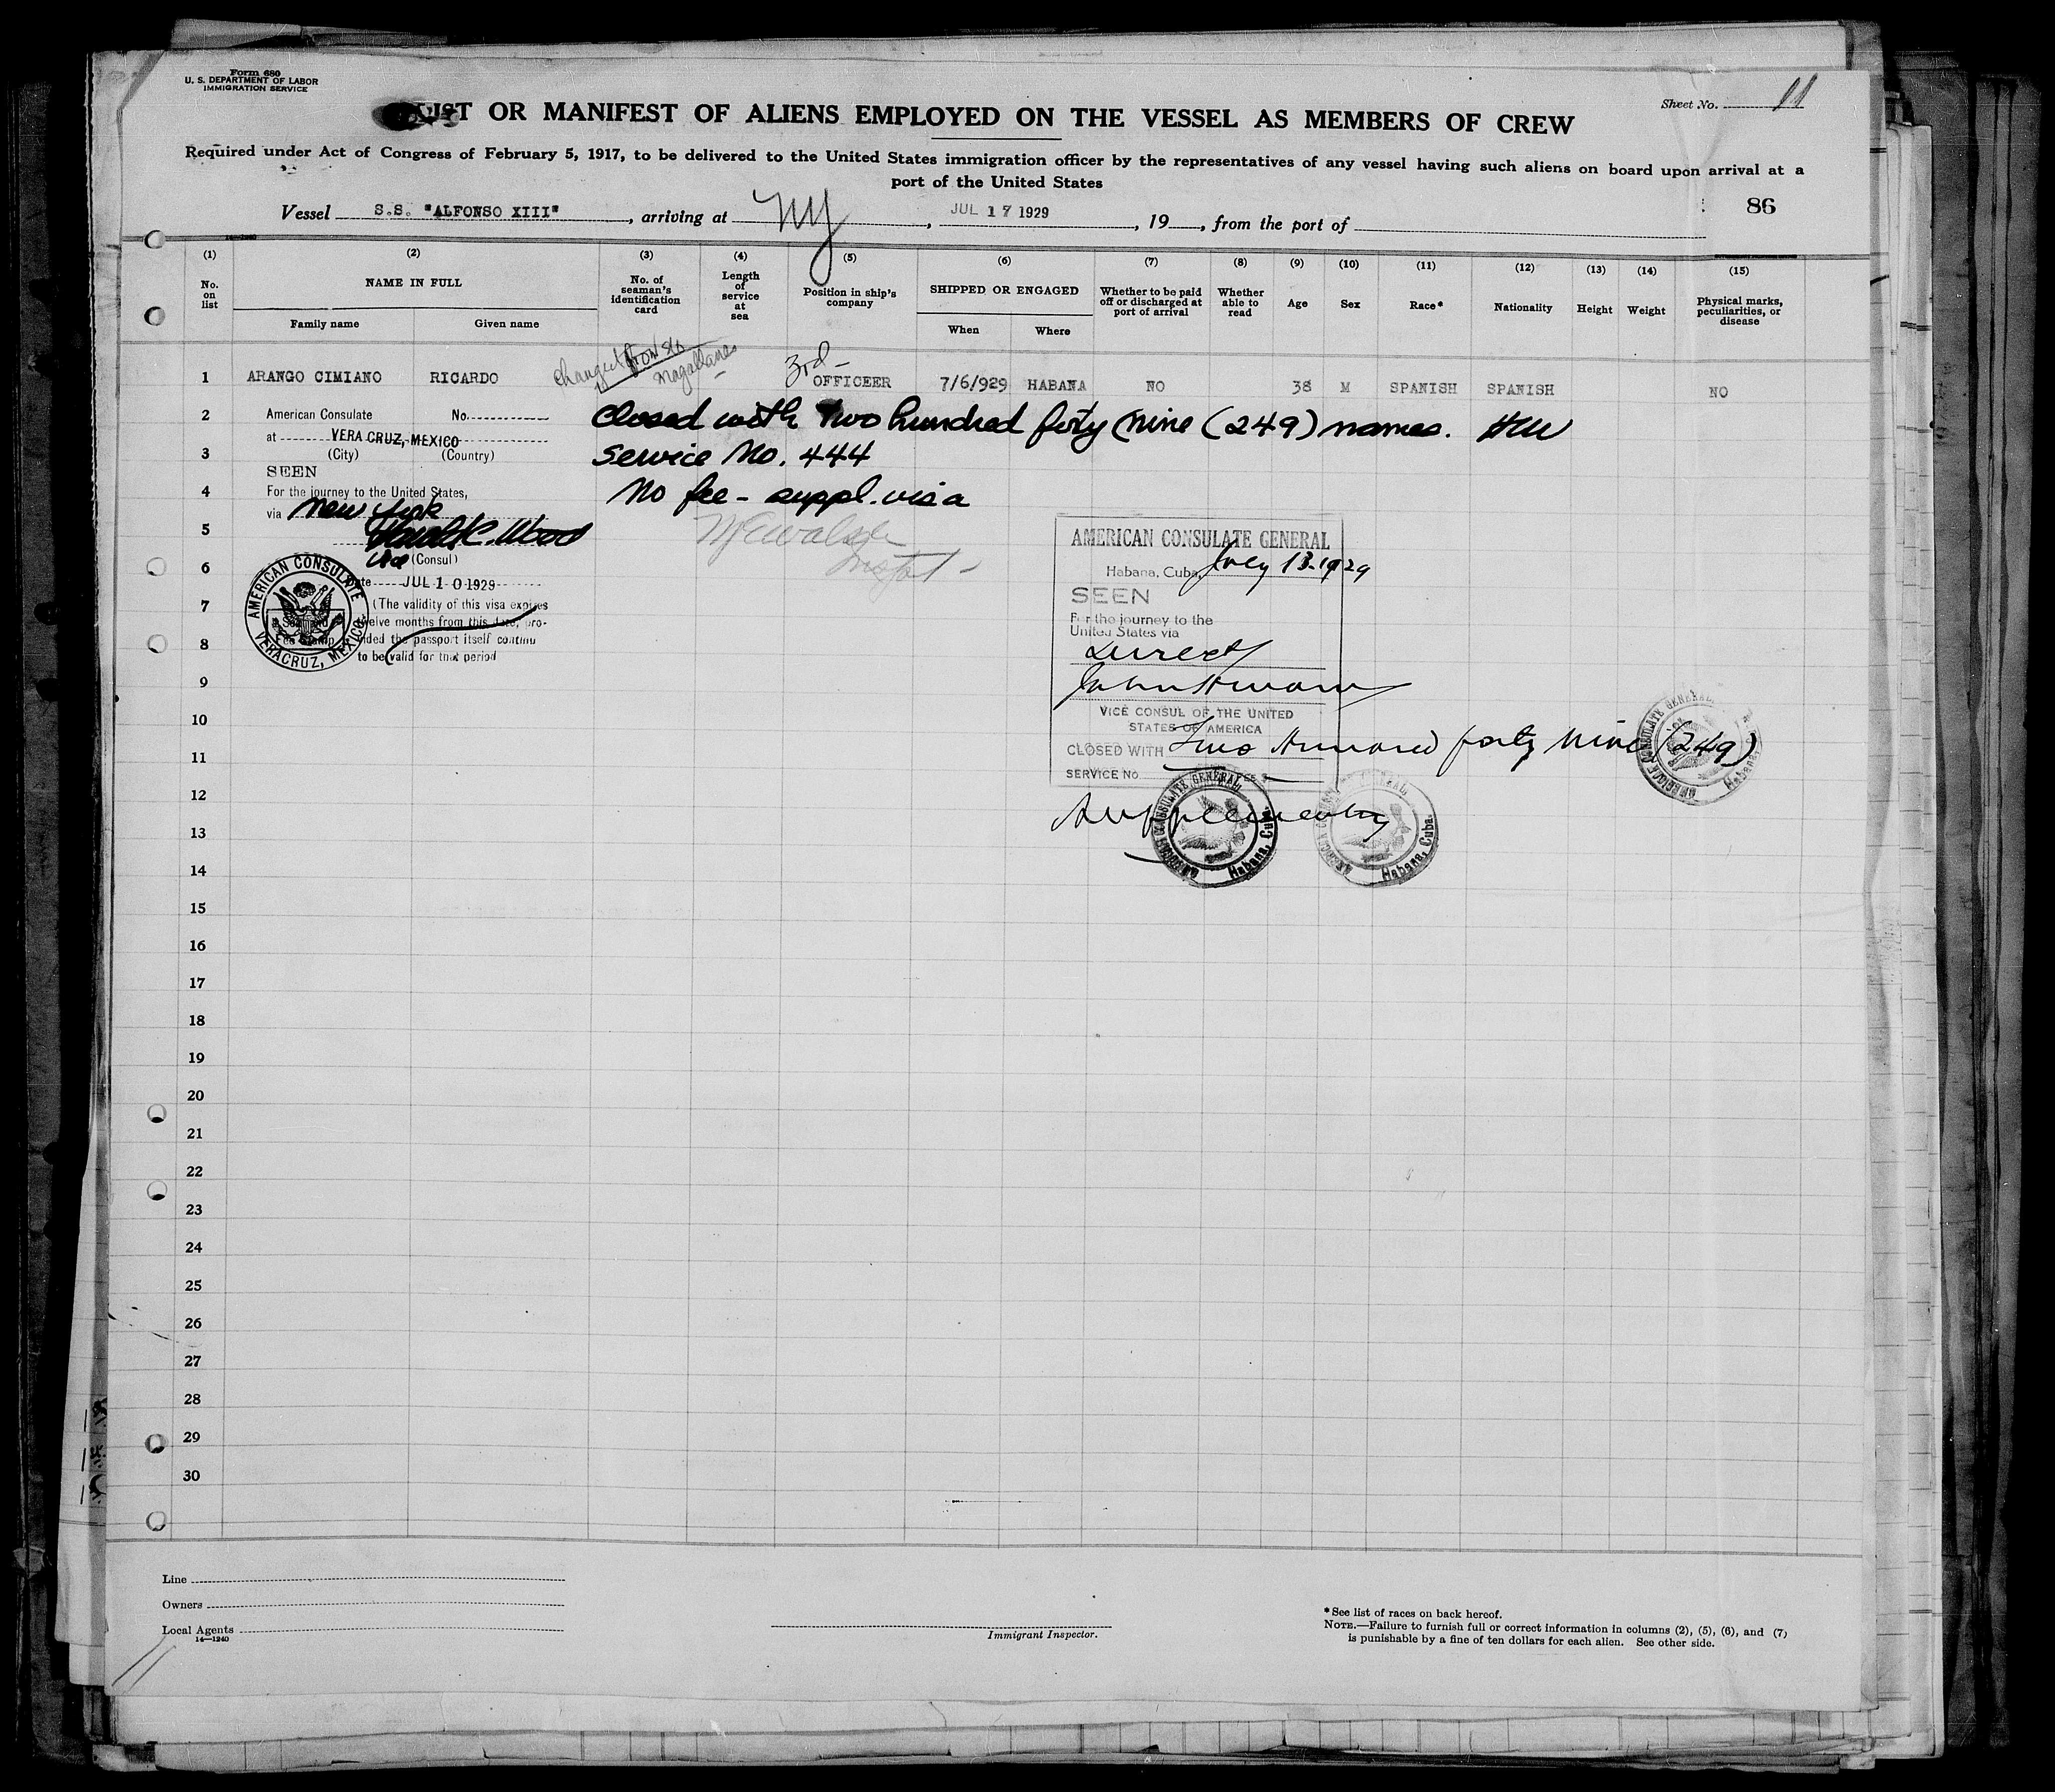 Form 680
U. S. DEPARTMENT OF LABOR
IMMIGRATION SERVICE
Sheet No. 11
LIST OR MANIFEST OF ALIENS EMPLOYED ON THE VESSEL AS MEMBERS OF CREW
Required under Act of Congress of February 5, 1917, to be delivered to the United States immigration officer by the representatives of any vessel having such aliens on board upon arrival at a
port of the United States
Vessel S.S. "ALFONSO XIII", arriving at NY, JUL 17 1929, 19, from the port of
86
(1) (2) (3) (4) (5) (6) (7) (8) (9) (10) (11) (12) (13) (14) (15)
No. on list
NAME IN FULL
Family name Given name
No. of seaman's identification card
Length of service at sea
Position in ship's company
SHIPPED OR ENGAGED
When Where
Whether to be paid off or discharged at port of arrival
Whether able to read
Age
Sex
Race*
Nationality
Height
Weight
Physical marks, peculiarities, or disease
changed from SS
Magallanes
3rd
1 ARANGO CIMIANO RICARDO OFFICEER 7/6/929 HABANA NO 38 M SPANISH SPANISH NO
2
American Consulate No.
closed with Two hundred forty nine (249) names. HCW
at VERA CRUZ, MEXICO
3
(City) (Country)
Service No. 444
SEEN
4
For the journey to the United States,
No fee - suppl. visa
via New York
5
Wood
Vice (Consul)
6
Date JUL 10 1929
(The validity of this visa expires
twelve months from this date, pro-
vided the passport itself continu
to be valid for that period
AMERICAN CONSULATE
VERACRUZ, MEXICO
7
8
AMERICAN CONSULATE GENERAL
Habana, Cuba, July 13-1929
SEEN
For the journey to the
United States via
Direct
VICE CONSUL OF THE UNITED
STATES OF AMERICA
CLOSED WITH Two Hundred forty nine (249)
SERVICE No
Supplementary
AMERICAN CONSULATE GENERAL, Habana, Cuba.
AMERICAN CONSULATE GENERAL, Habana, Cuba.
9
10
11
12
13
14
15
16
17
18
19
20
21
22
23
24
25
26
27
28
29
30
Line
Owners
Local Agents
14—1240
Immigrant Inspector.
*See list of races on back hereof.
NOTE.—Failure to furnish full or correct information in columns (2), (5), (6), and (7)
is punishable by a fine of ten dollars for each alien. See other side.
11